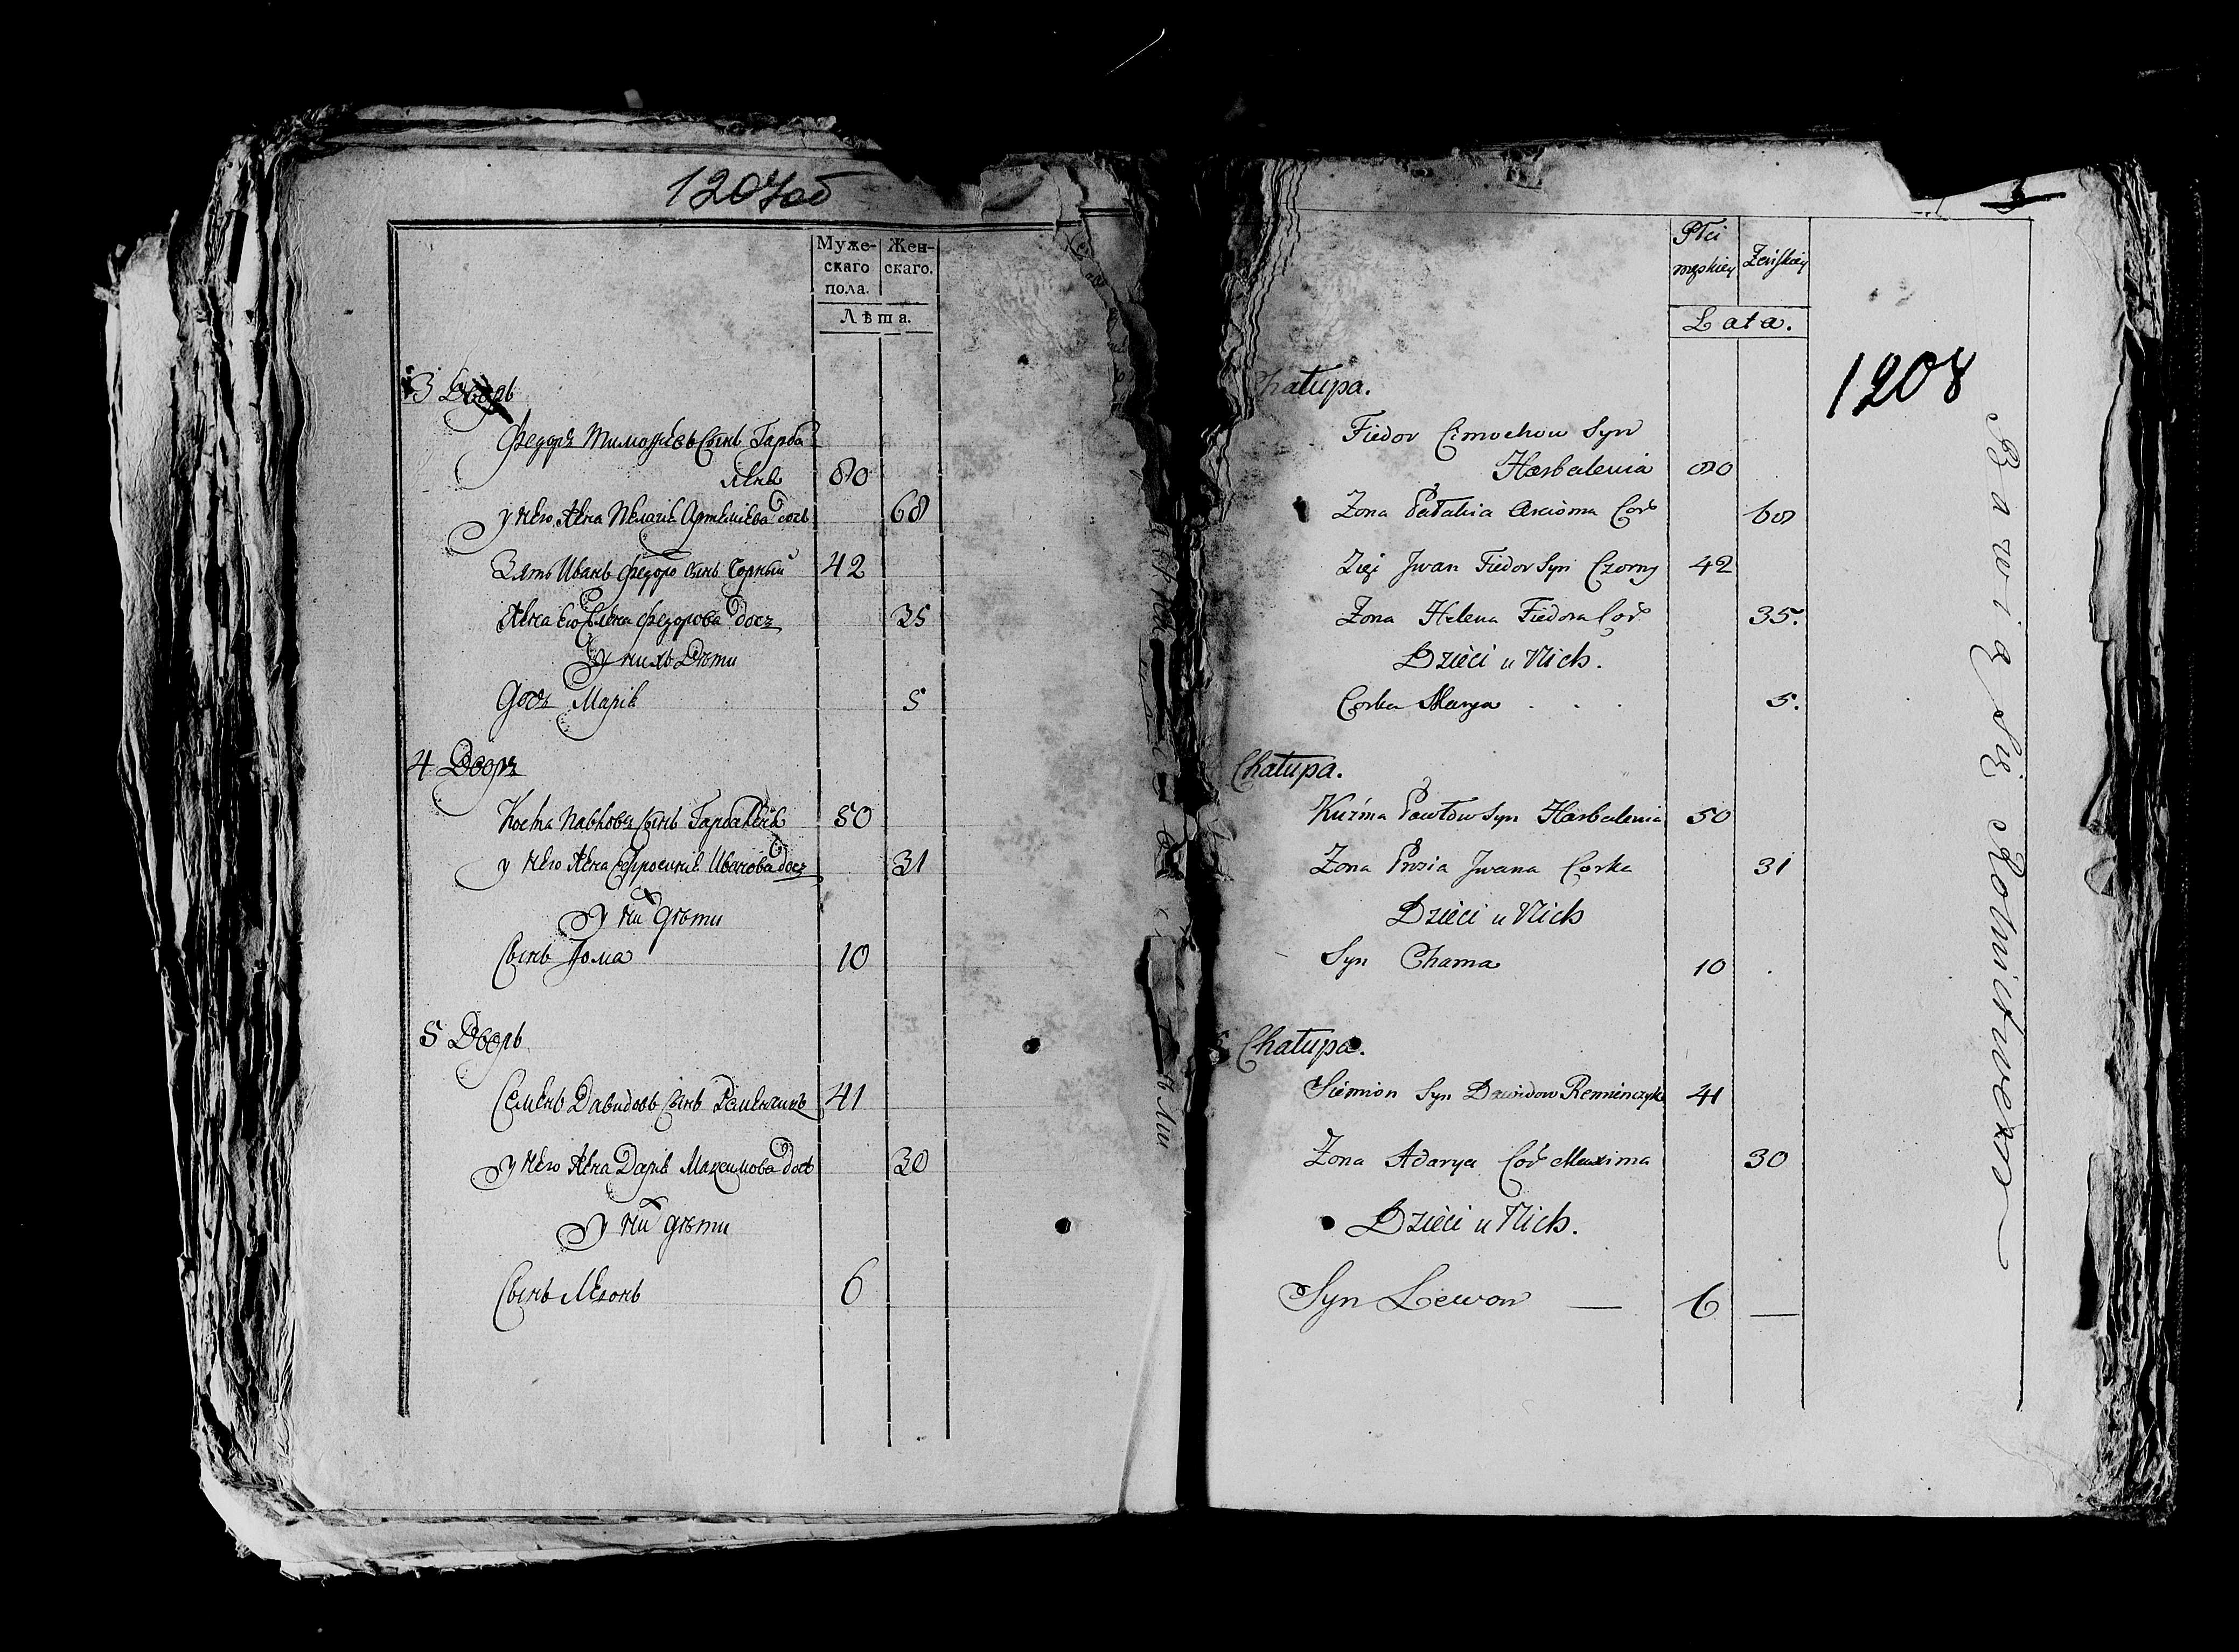 1207об
Муже- Жен-
скаго скаго.
пола.
Лѣта.
3 Дворъ
Федоръ Тимофѣевъ Сынъ Гарба
80
у него жена Пелагiя 68
Зять Иванъ Федоро сынъ Чорный 42
Жена его Елена Федорова дочъ 35
У нихъ Дѣти
дочъ Марiя 5
4 Дворъ
Павловъ Сынъ 50
у него жена Иванова дочъ 31
У них дѣти
Сынъ Хома 10
5 Дворъ
Семенъ Давидовъ Сынъ 41
у него жена Дарiя Максимова дочъ 30
У них дѣти
Сынъ Леонъ 6
Płci
męskiey Żeńskiey
Lata.
1208
Chałupa.
Fiedor Cimochow Syn
Harbalenia 80
Zona Cor 68
Zięć Jwan Fiedor Syn Czorny 42
Zona Helena Fiedora Cor 35.
Dzieci u Nich.
Corka Marya 5.
Chałupa.
Kuźma Pawłow Syn Harbalenia 50
Zona Prosia Jwana Corka 31
Dzieci u Nich
Syn Chama 10
5 Chałupa.
Siemion Syn Dawidow Remienczyk 41
Zona Adarya Cor Maxima 30
Dzieci u Nich.
Syn Lewon — 6 —
Bawią Się Rolnictwem